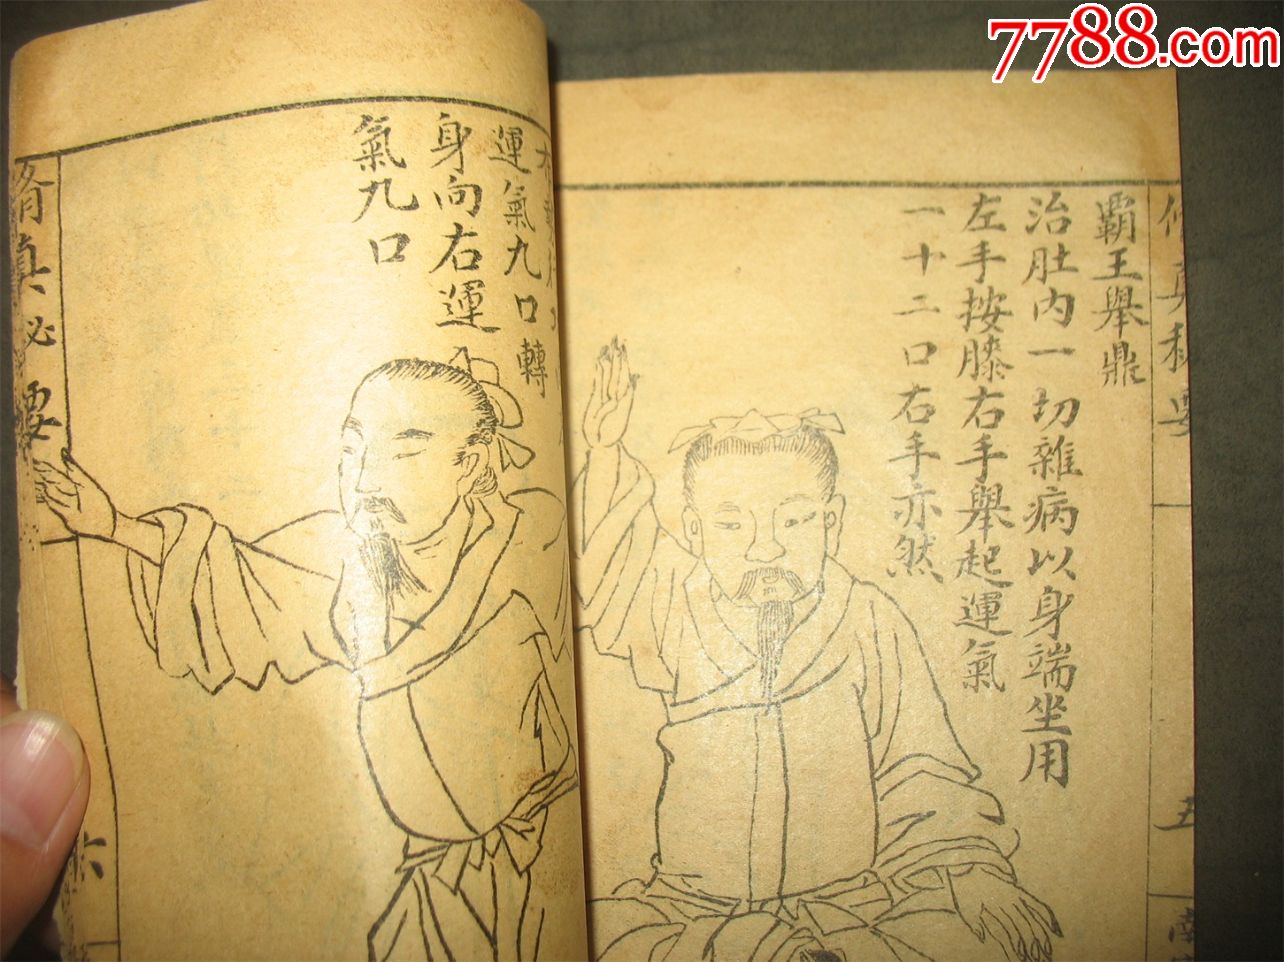 7788.com
霸王舉鼎
治肚內一切雜病以身端坐用
左手按膝右手舉起運氣
一十二口右手亦然
五
運氣九口轉
身向右運
氣九口
脩真必要
六